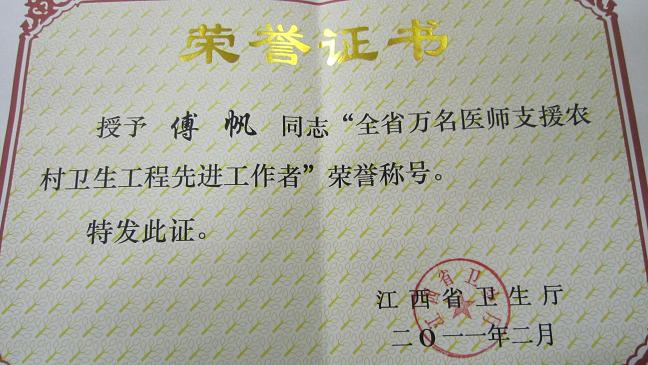 荣誉证书
授予 傅帆 同志“全省万名医师支援农
村卫生工程先进工作者”荣誉称号。
特发此证。
江西省卫生厅
江西省卫生厅
二〇一一年二月